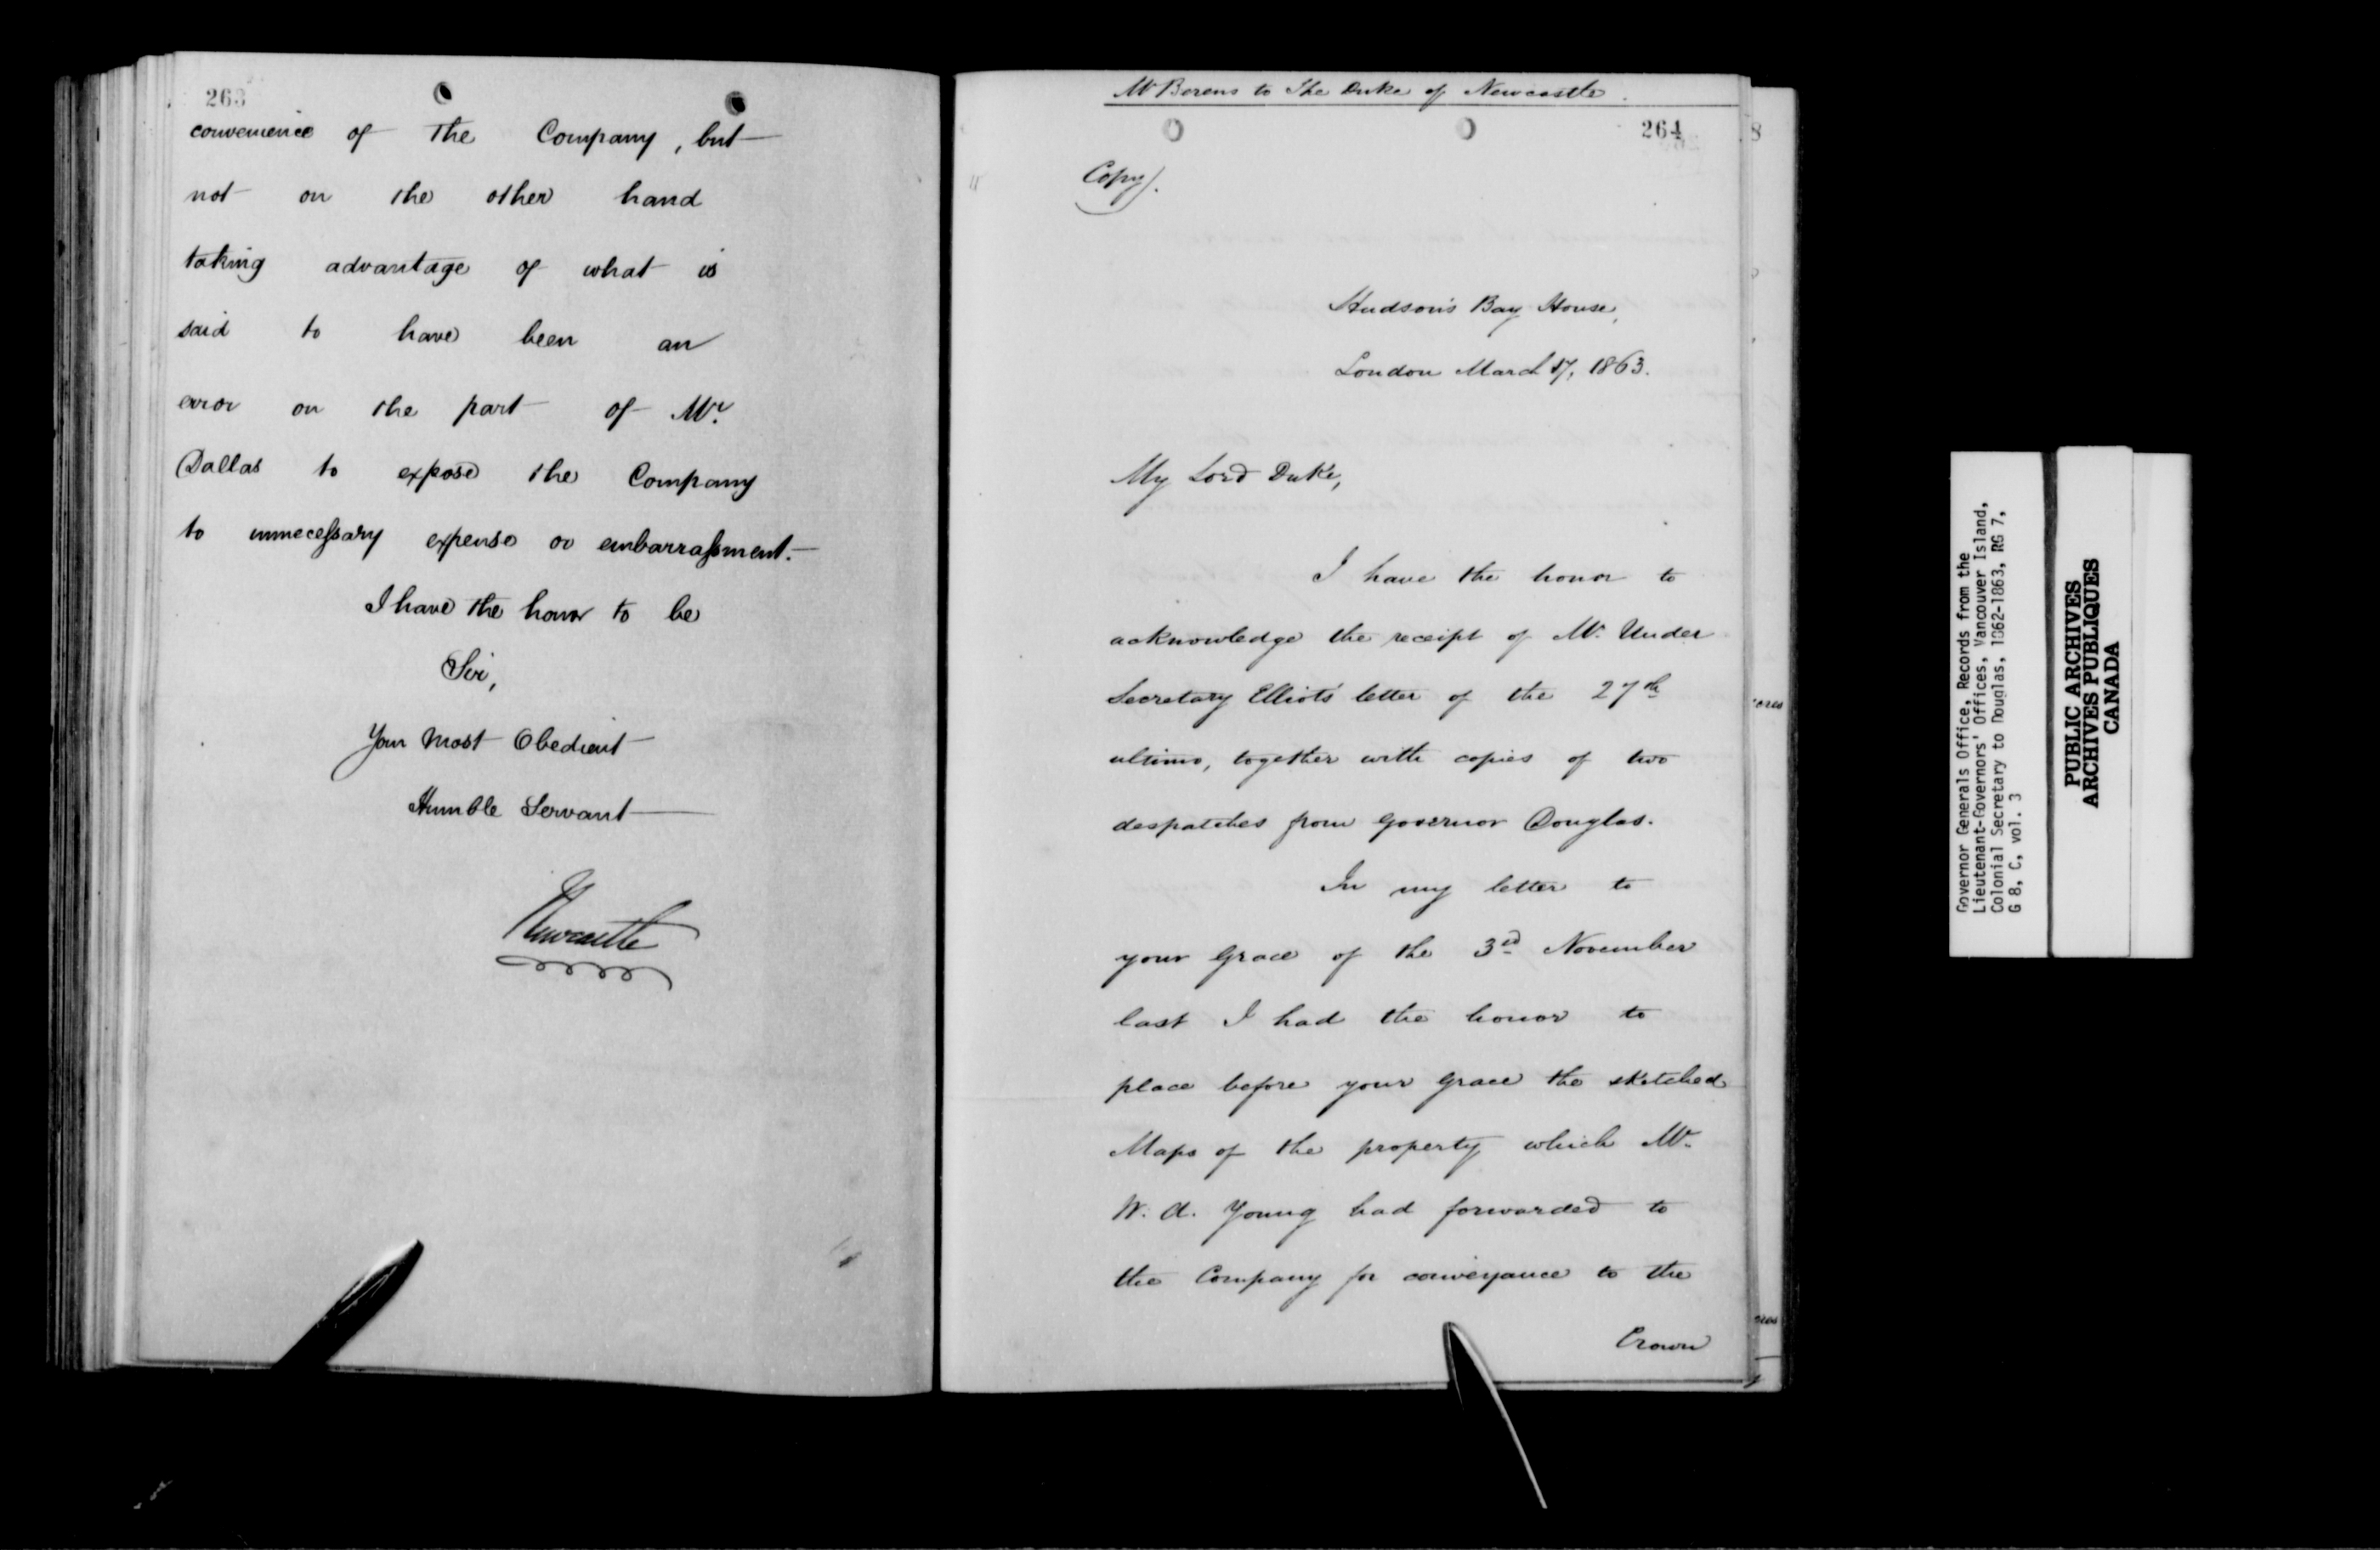 263
convenience of the Company, but
not on the other hand
taking advantage of what is
said to have been an
error on the part of Mr.
Dallas to expose the Company
to unnecessary expense or embarrassment.
I have the honor to be
Sir,
Your Most Obedient
Humble Servant
Newcastle
Mr Berens to The Duke of Newcastle.
264
Copy).
Hudson's Bay House,
London March 17, 1863.
My Lord Duke,
I have the honor to
acknowledge the receipt of Mr. Under
Secretary Elliot's letter of the 27th
ultimo, together with copies of two
despatches from Governor Douglas.
In my letter to
your Grace of the 3rd November
last I had the honor to
place before your Grace the sketched
Maps of the property which Mr.
W. A. Young had forwarded to
the Company for conveyance to the
Crown
Governor Generals Office, Records from the
Lieutenant-Governors' Offices, Vancouver Island,
Colonial Secretary to Douglas, 1862-1863, RG 7,
G 8, C, vol. 3
PUBLIC ARCHIVES
ARCHIVES PUBLIQUES
CANADA